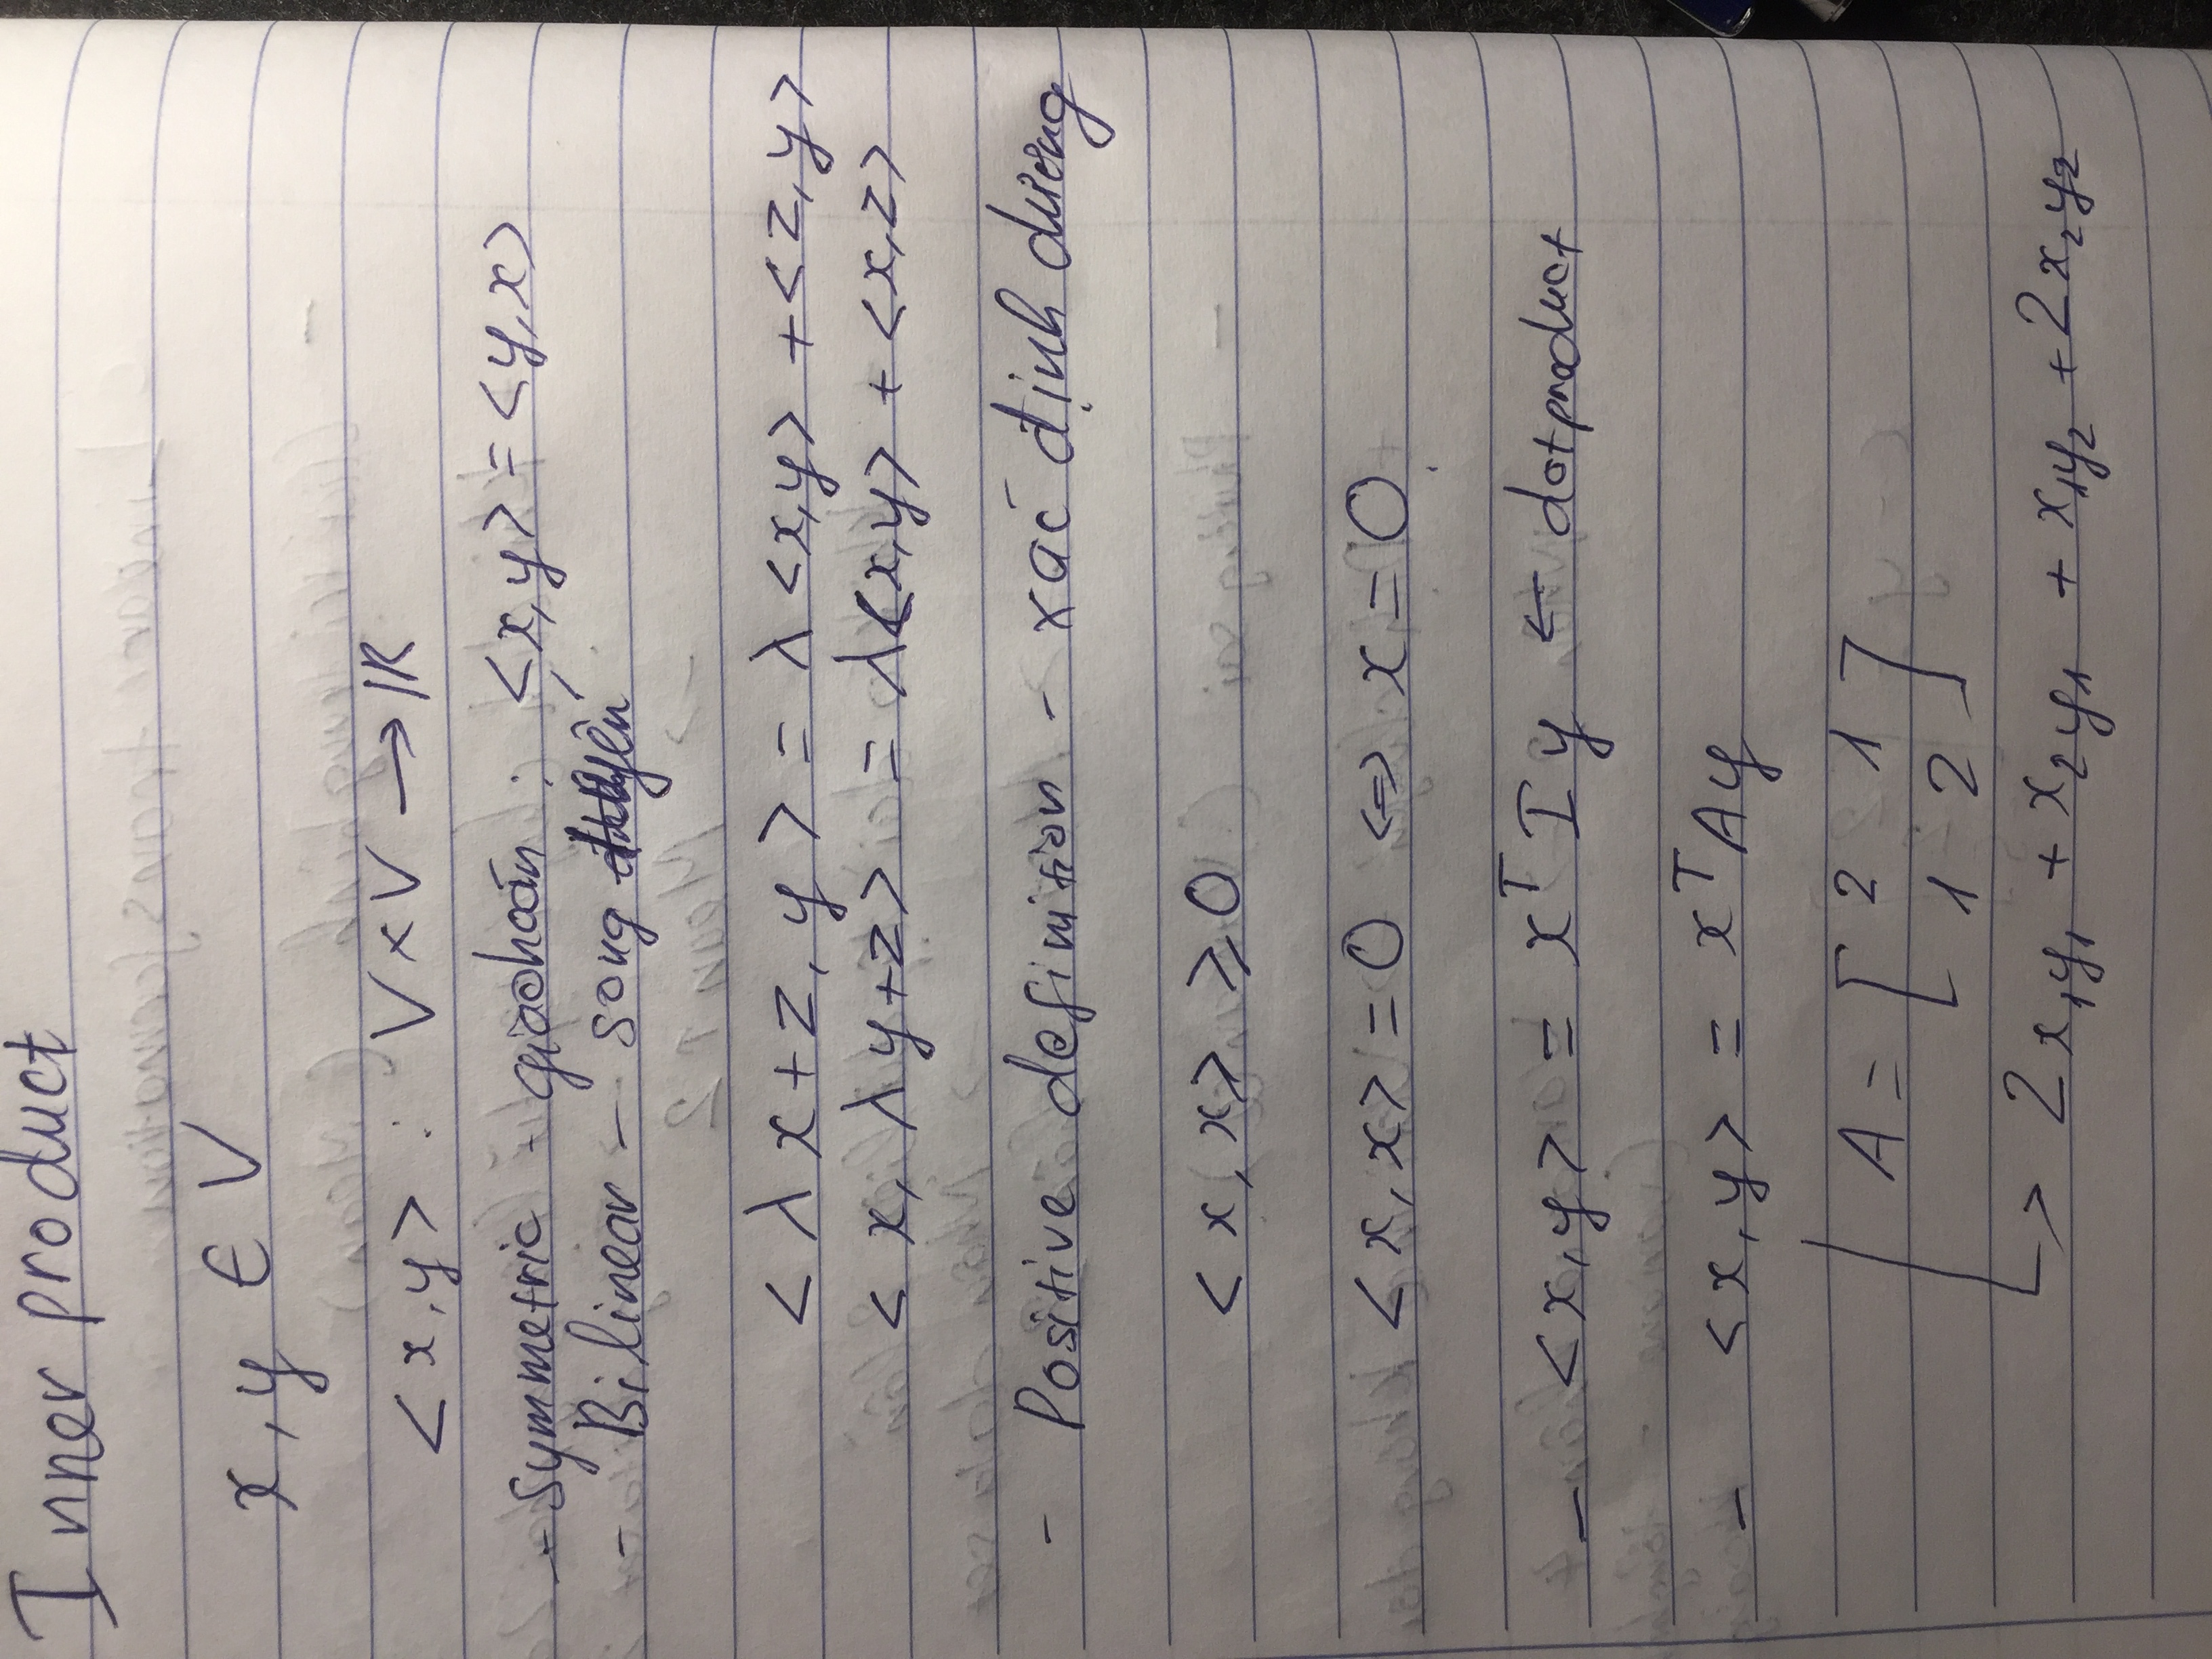 Inner product
x, y ∈ V
<x,y> : V×V → ℝ
- Symmetric - giaohoán : <x,y> = <y,x>
- Bilinear - song tuyến
< λx+z, y > = λ<x,y> + <z,y>
< x, λy+z> = λ<x,y> + <x,z>
- Positive definition - xác định dương
<x, x> ⩾ 0
<x,x> = 0 <=> x = 0
- <x,y> = xᵀ I y ← dotproduct
- <x,y> = xᵀAy
A = [ 2 1
1 2 ]
→ 2x₁y₁ + x₂y₁ + x₁y₂ + 2x₂y₂